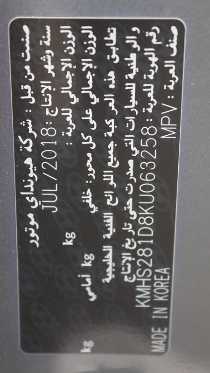 صنعت من قبل : شركة هيونداي موتور
سنة وشهر الإنتاج : JUL/2018
الوزن الإجمالي للعربة : kg
الوزن الإجمالي على كل محور : خلفي kg أمامي kg
تطابق هذه المركبة جميع اللوائح الفنية الخليجية
والوطنية للسيارات التي صدرت حتى تاريخ الإنتاج
رقم الهوية للعربة : KMHS281D8KU063258
صنف العربة : MPV
MADE IN KOREA